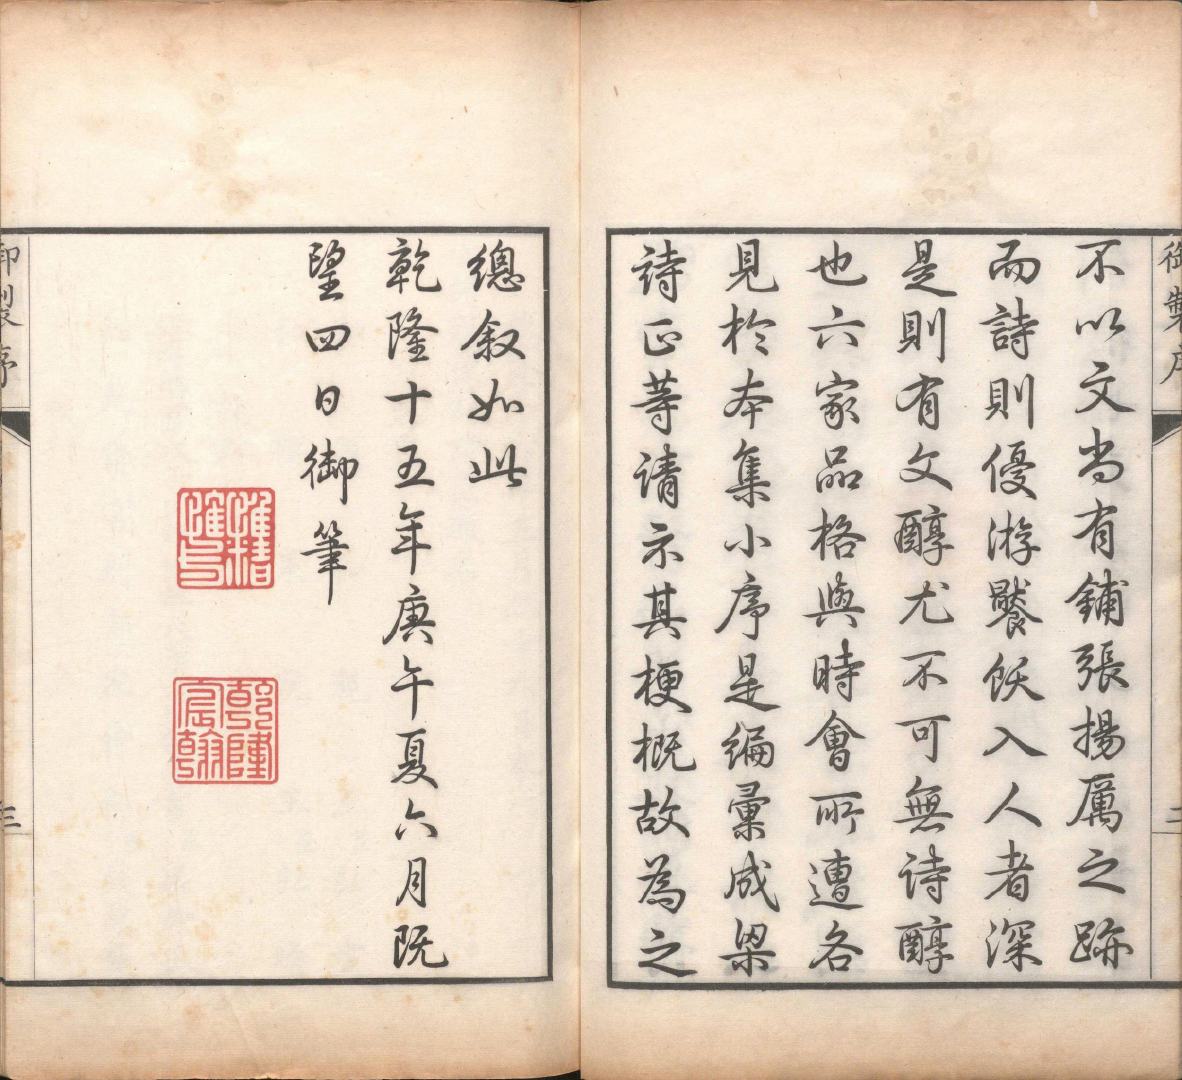 御製序
不以文尚有鋪張揚厲之跡
而詩則優游饜飫入人者深
是則有文醇尤不可無詩醇
也六家品格與時會所遭各
見於本集小序是編彙成梁
詩正等請示其梗概故為之
二
總敘如此
乾隆十五年庚午夏六月既
望四日御筆
惟精惟一
乾隆宸翰
御製序
三